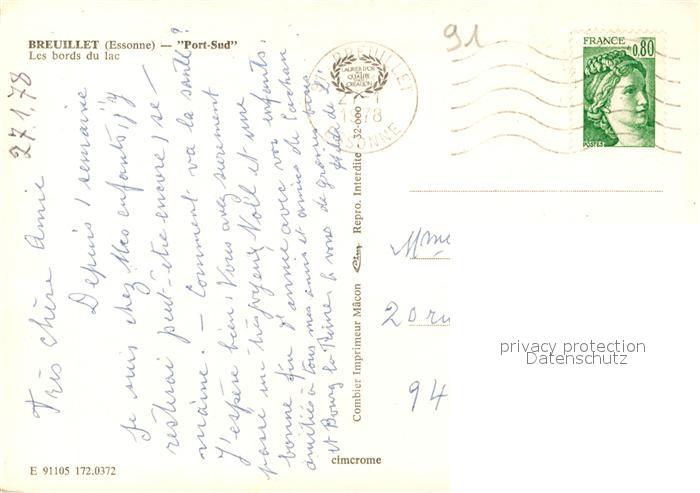 BREUILLET (Essonne) — "Port-Sud"
Les bords du lac
27.1.78
Très chère Amie
Depuis 1 semaine
je suis chez mes enfants, j'y
resterai peut-être encore 1 se-
maine. — Comment va la santé ?
J'espère bien, Vous avez surement
passé un joyeux Noël et une
bonne fin d'année avec vos enfants.
amitiés à tous mes amis et amies de Cachan
et Bourg la Reine, à vous de grosses bises
E 91105 172.0372
cimcrome
Combier Imprimeur Mâcon Cim Repro. Interdite 32-000
LAURIER D'OR
DE LA
QUALITÉ
CRÉATION
91
BREUILLET
1978
ESSONNE
FRANCE
0,80
POSTES
Mme
20 ru
94
privacy protection
Datenschutz